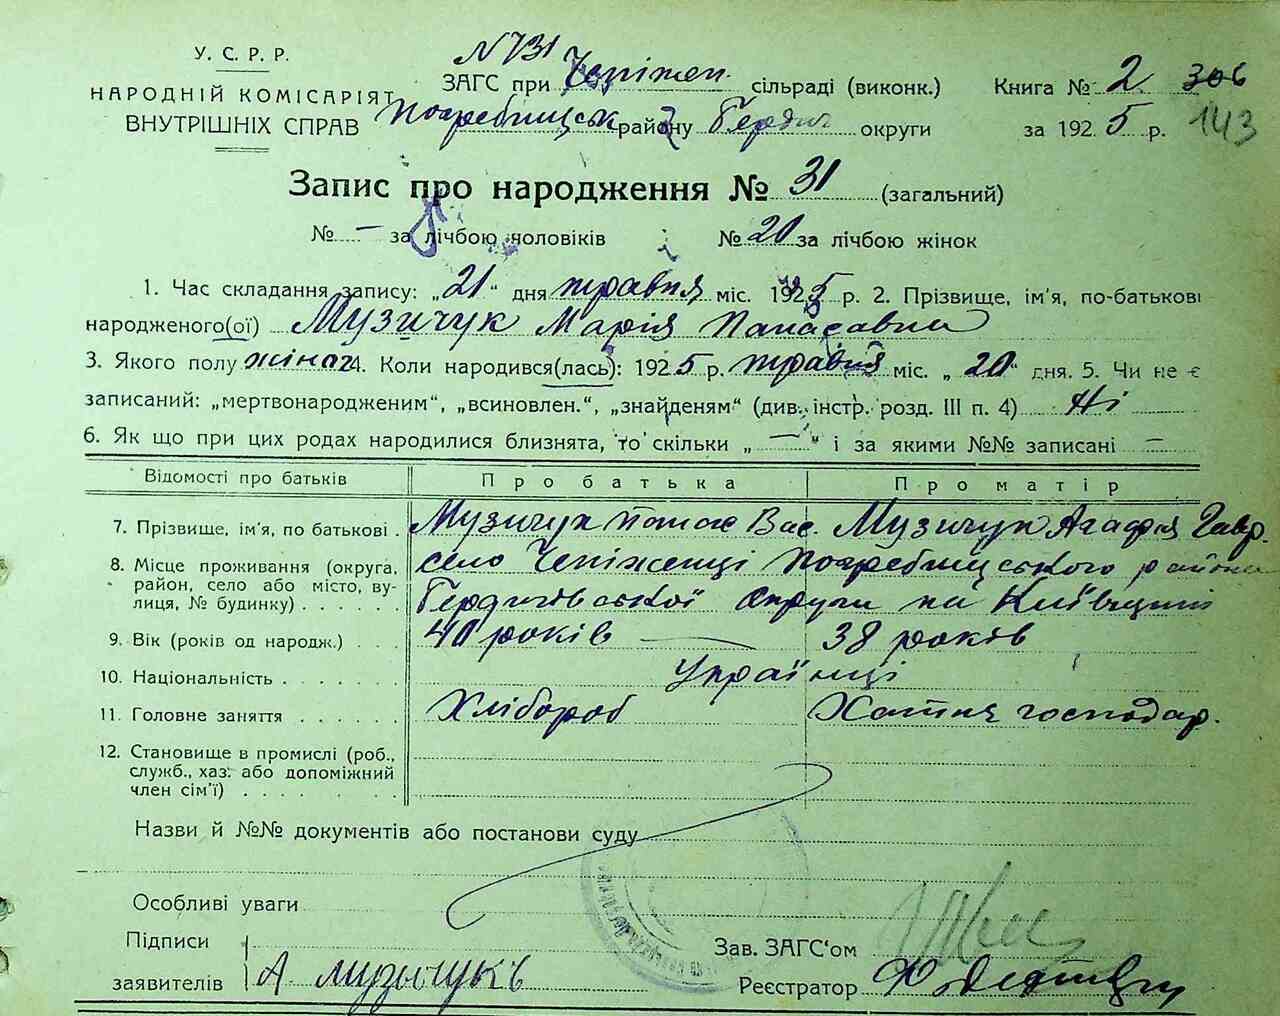 У. С. Р. Р.
НАРОДНІЙ КОМІСАРІЯТ
ВНУТРІШНІХ СПРАВ
N 731
ЗАГС при Чепіжен. сільраді (виконк.)
Погребищськ району Бердич округи
Книга № 2 306
за 1925 р. 143
Запис про народження № 31 (загальний)
№ — за лічбою чоловіків № 20 за лічбою жінок
1. Час складання запису: „21“ дня травня міс. 1925 р. 2. Прізвище, ім'я, по-батькові
народженого(ої) Музичук Марія Панасавна
3. Якого полу жіноч 4. Коли народився(лась): 1925 р. травня міс. „20“ дня. 5. Чи не є
записаний: „мертвонародженим“, „всиновлен.“, „знайденям“ (див. інстр. розд. III п. 4) Ні
6. Як що при цих родах народилися близнята, то скільки „—“ і за якими №№ записані —
Відомості про батьків Про батька Про матір
7. Прізвище, ім'я, по батькові . Музичук Панас Вас. Музичук Агафія Гавр.
8. Місце проживання (округа, район, село або місто, вулиця, № будинку) село Чепіженці Погребищського району
Бердичівської округи на Київщині
9. Вік (років од народж.) 40 років — 38 років
10. Національність Українці
11. Головне заняття Хлібороб Хатня господар.
12. Становище в промислі (роб.,
служб., хаз. або допоміжний
член сім'ї)
Назви й №№ документів або постанови суду
Особливі уваги
Підписи
заявителів А музычукъ
Зав. ЗАГС'ом
Реєстратор